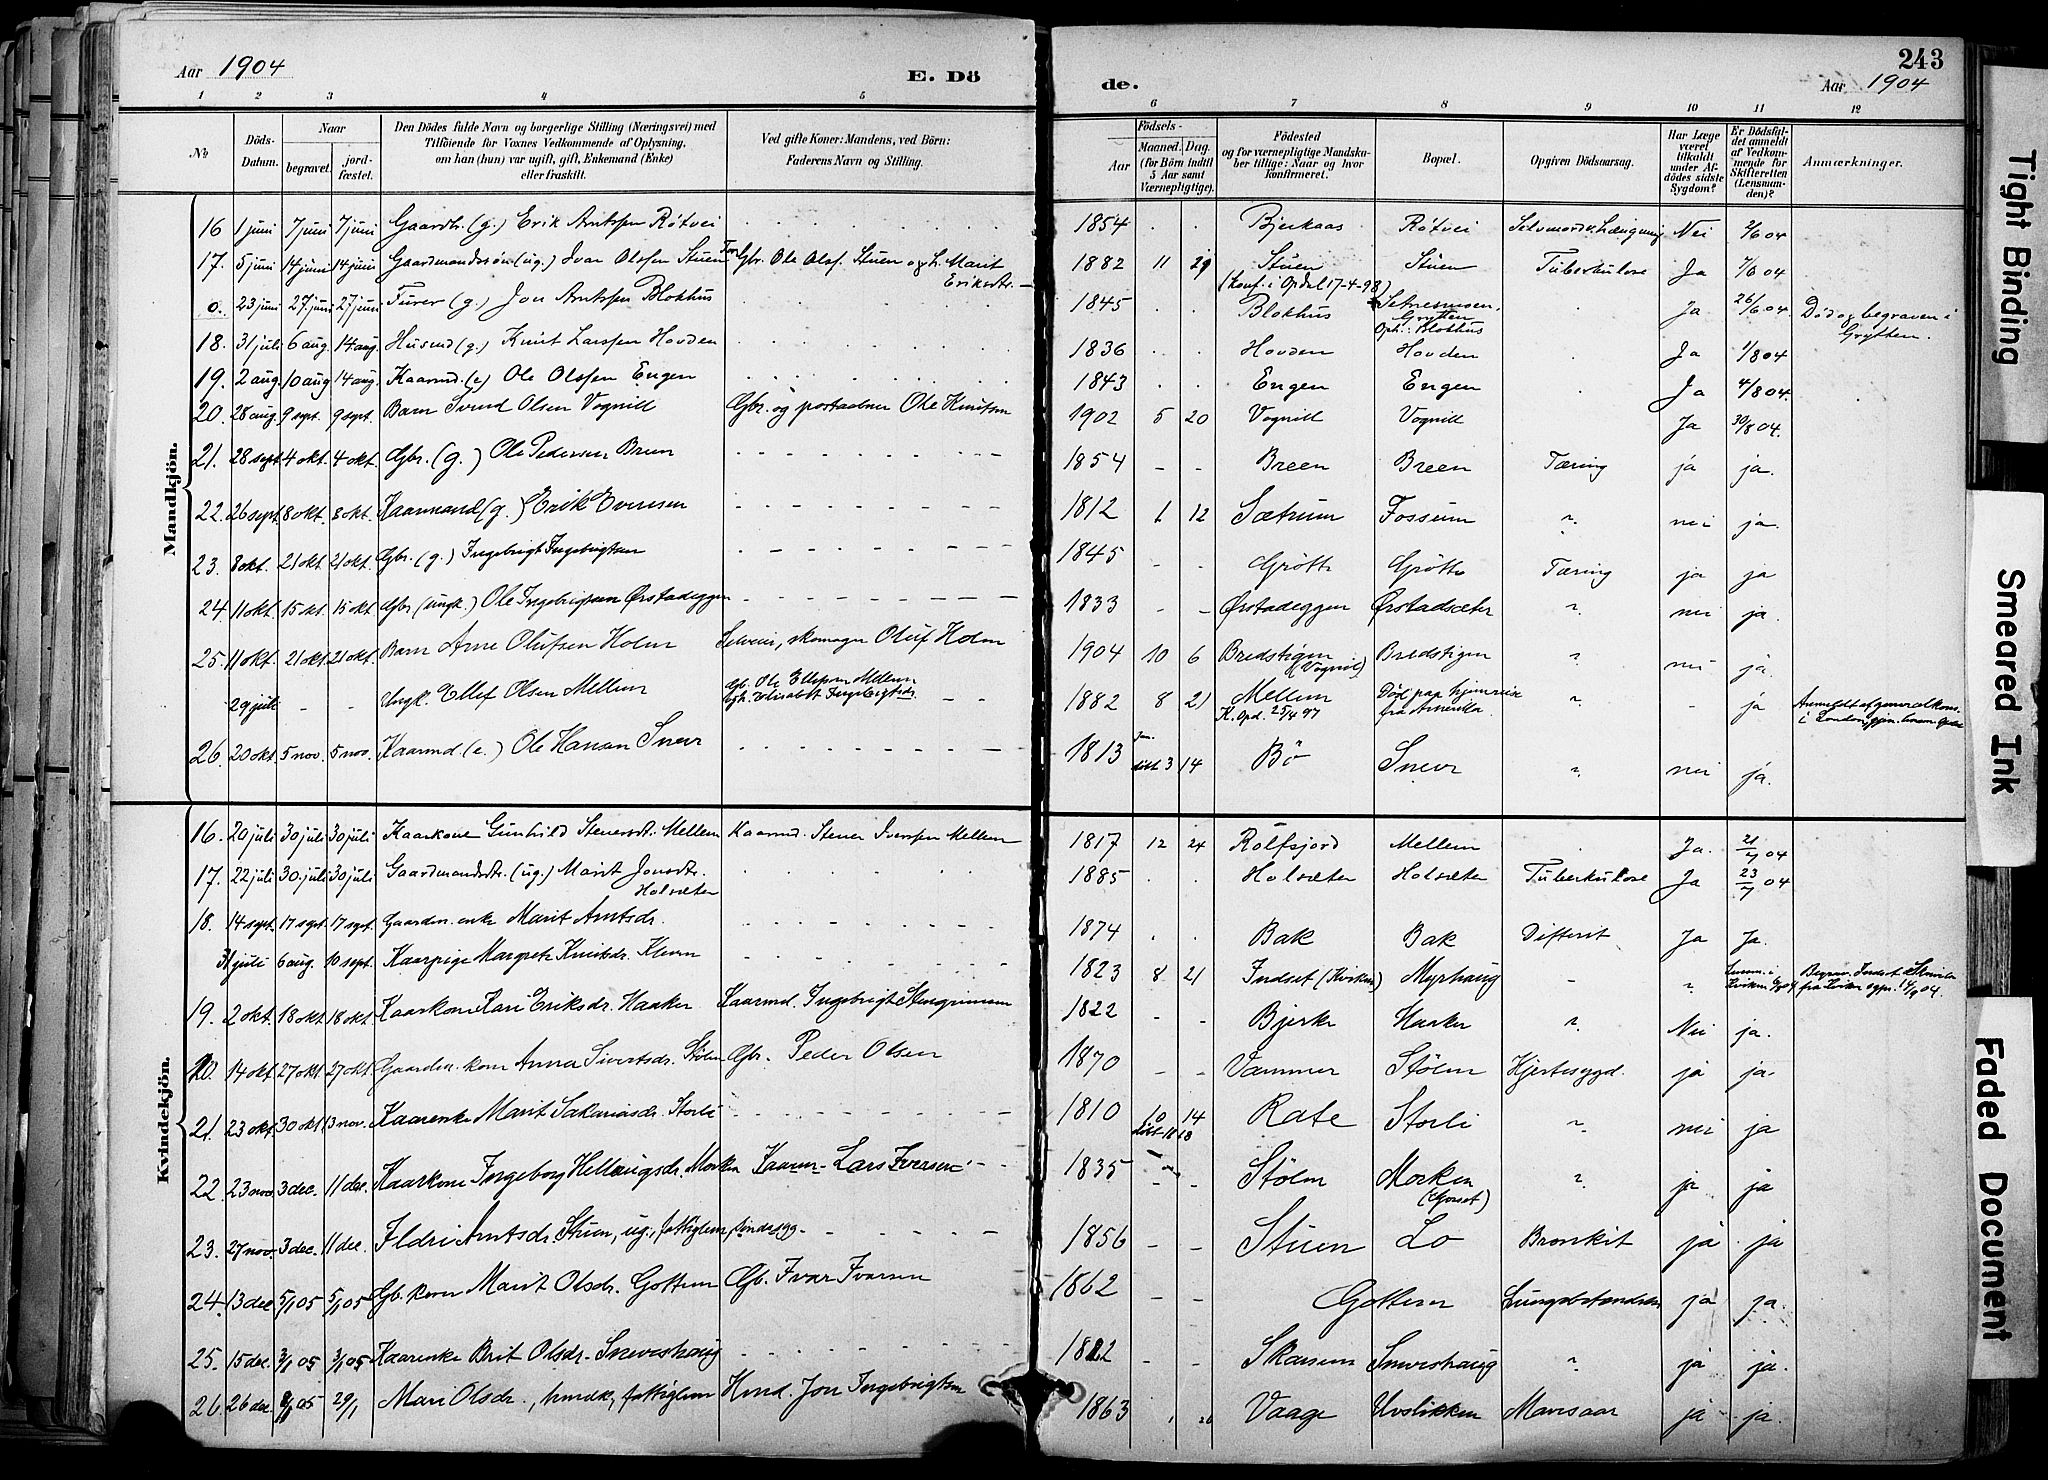 Aar 1904 E. Dö
de. 243
Aar 1904
1 2 3 4 5 6 7 8 9 10 11 12
No
Döds-Datum.
Naar
begravet.
jord-fæstet.
Den Dödes fulde Navn og borgerlige Stilling (Næringsvei) med
Tilföiende for Voxnes Vedkommende af Oplysning,
om han (hun) var ugift, gift, Enkemand (Enke)
eller fraskilt.
Ved gifte Koner: Mandens, ved Börn:
Faderens Navn og Stilling.
Födsels-
Aar
Maaned. Dag.
(for Börn indtil
5 Aar samt
Værnepligtige).
Födested
og for værnepligtige Mandska-
ber tillige: Naar og hvor
konfirmeret.
Bopæl.
Opgiven Dödsaarsag.
Har Læge
været
tilkaldt
under Af-
dödes sidste
Sygdom?
Er Dödsfal-
det anmeldt
af Vedkom-
mende for
Skifteretten
(Lensman-
den)?
Anmærkninger.
Mandkjön.
16 1 juni 7 juni 7 juni Gaardbr. (g.) Erik Arntsen Røtvei 1854 Bjerkaas Røtvei Selvmord v. hængning Nei 2/6 04
17. 5 juni 14 juni 14 juni Gaardmandssøn (ug.) Ivar Olsen Stuen For. Gbr. Ole Ols. Stuen og h. Marit Eriksdtr. 1882 11 29 Stuen Stuen Tuberkulose Ja 7/6 04
(Konf. i Opdal 17-4-98)
0. 23 juni 27 juni 27 juni Furer (g.) Jon Arntsen Blokhus 1845 Blokhus Setnesmoen, Grytten Oph.: Blokhus Ja 26/6 04 Død og begraven i Grytten.
18. 31 juli 6 aug. 14 aug. Husmd (g.) Knut Larssen Hovden 1836 Hovden Hovden Ja 1/8 04
19. 2 aug. 10 aug 14 aug. Kaarmd. (e) Ole Olssen Engen 1843 Engen Engen Ja 4/8 04.
20. 28 aug. 9 sept. 9 sept. Barn Svend Olsen Vognill Gbr. og postaabner Ole Knutsen 1902 5 20 Vognill Vognill Ja 30/8 04.
21. 28 sept 4 okt. 4 okt. Gbr. (g.) Ole Pedersen Breen 1854 Breen Breen Tæring ja ja.
22. 26 sept. 8 okt. 8 okt. Kaarmand (g.) Erik Evensen 1812 1 12 Sætrum Fossum " nei ja.
23. 8 okt. 21 okt. 21 okt. Gbr. (g.) Ingebrigt Ingebrigtsen 1845 Grötte Grötte Tæring ja ja
24. 11 okt. 15 okt. 15 okt. Gbr. (ungk.) Ole Ingebrigtsen Ørstadeggen 1833 Ørstadeggen Ørstadsæter " nei ja.
25. 11 okt. 21 okt. 21 okt. Barn Arne Olufsen Holm Selveier, skomager Oluf Holm 1904 10 6 Bredstigen (Vognil) Bredstigen " nei ja.
29 juli Ungk. Ellef Olsen Mellem Gb. Ole Ellefsen Mellem Elisabet Ingebrigtsdr. 1882 8 21 Mellem Død paa hjemreise fra Amerika " ja Anmeldt af generalkons. i London,
K. Opd. 25/4 97
26. 20 okt. 5 nov. 5 nov. Kaarmd. (e.) Ole Hansen Snevr 1813 3 14 Bö Snevr " nei ja.
Kvindekjön.
16. 20 juli 30 juli 30 juli Kaarkone Gunhild Stenersdr. Mellem Kaarmd. Stener Iverssen Mellem 1817 12 24 Rolfsjord Mellem Ja. 21/7 04
17. 22 juli 30 juli 30 juli Gaardmandsdtr. (ug.) Marit Jonsdtr. Holsæter 1885 Holsæter Holsæter Tuberkulose Ja 23/7 04
18. 14 sept. 17 sept. 17 sept. Gaardm. enke Marit Arntsdr. 1874 Bak Bak Difterit Ja Ja.
31 juli 6 aug. 10 sept. Kaarpige Margrete Knutsdr. Kleven 1823 8 21 Indset (Kvikne) Myrhaug "
19. 2 okt. 18 okt. 18 okt. Kaarkone Kari Eriksdr. Haaker Kaarmd. Ingebrigt Stengrimsen 1822 Bjerke Haaker " Nei ja.
20. 14 okt. 27 okt. 27 okt. Gaardm. kone Anna Sivertsdr. Stölen Gbr. Peder Olsen 1870 Vammer Stölen Hjertesygd. ja ja.
21. 23 okt. 30 okt. 13 nov. Kaarenke Marit Sakariasdr. Storli 1810 10 14 Rate Storli " nei ja
22. 23 nov. 3 dec. 11 dec. Kaarkone Ingeborg Hellaugsdr. Morken Kaarm. Lars Iversen 1835 Stölen Morken (Gorset) " ja ja
23. 27 nov. 3 dec. 11 dec. Ildri Arntsdr. Stuen, ug., fattiglem, sindssyg 1856 Stuen Lo Bronkit ja ja
24. 13 dec 5/1 05 5/1 05 Gb. kone Marit Olsdr. Gottem Gb. Ivar Ivarsen 1862 Gottem Lungebetændelse ja ja.
25. 15 dec. 3/1 05 3/1 05 Kaarenke Brit Olsdr. Snevershaug 1822 Skarsem Snevershaug " ja ja.
26. 26 dec. 8/1 05 29/1 Mari Olsdr., hmdk, fattiglem Hmd. Jon Ingebrigtsen 1863 Vaage Uvslikken Mavesaar ja ja.
Tight Binding
Smeared Ink
Faded Document